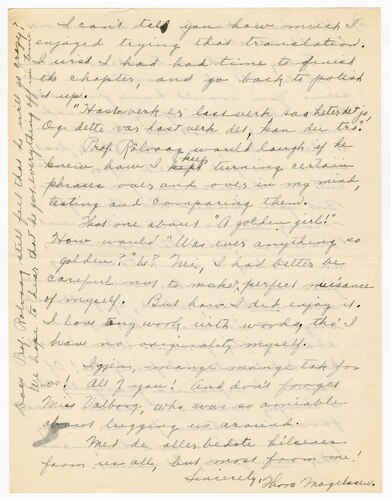 I can't tell you how much I
enjoyed trying that translation.
I wish I had had time to finish
the chapter, and go back to polish
it up.
"Hastverk er lastverk, saa heter det jo,
Og dette var hastverk det, kan du tro."
Prof. Rölvaag would laugh if he
knew how I keep turning certain
phrases over and over in my mind,
testing and comparing them.
That one about "A golden girl!"
How would "Was ever anything so
golden?" do? Nei, I had better be
careful not to make perfect nuisance
of myself. But how I did enjoy it.
I love any work with words, tho' I
have no originality myself.
Igjen, mange mange tak for
oss! All of you! And don't forget
Miss Valborg, who was so amiable
about lugging us around.
Med de allerbedste hilsener
from us all, but most from me!
Sincerely, Thora Magelssen.
Does Prof. Rolvaag still feel that he will go crazy?
We hope to hear that he got everything off in time